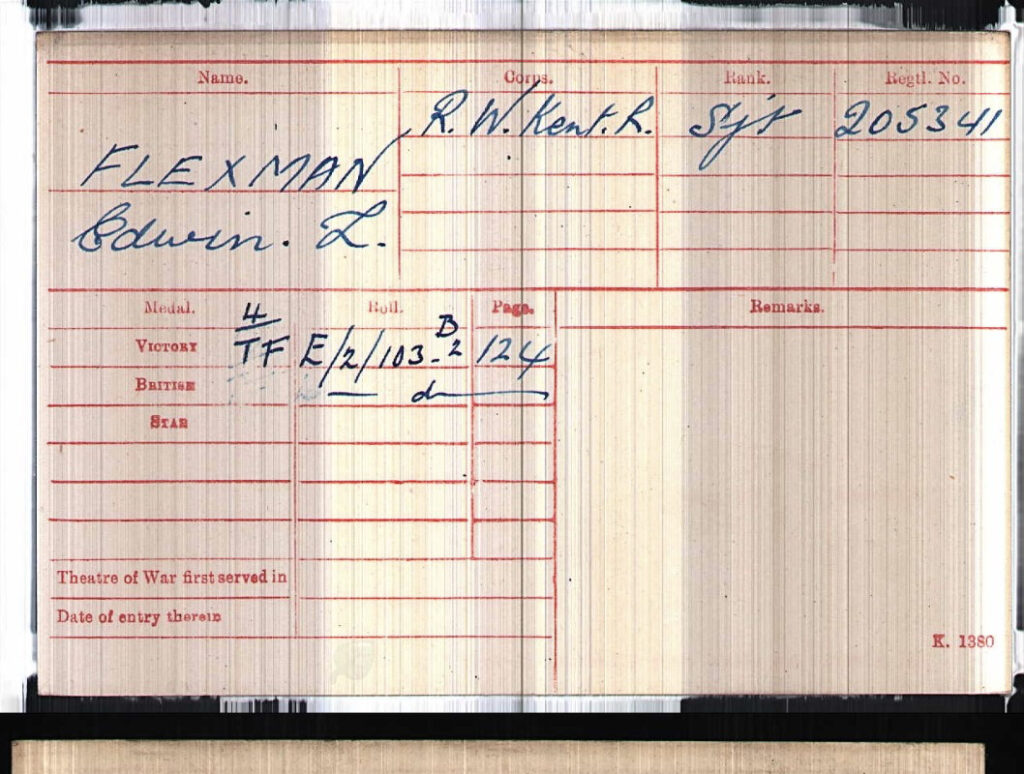 Name. Corps. Rank. Regtl. No.
R. W. Kent. R. Sjt 205341
FLEXMAN
Edwin. L.
Medal. Roll. Page. Remarks.
4
VICTORY TF E/2/103-B2 124
BRITISH — do —
STAR
Theatre of War first served in
Date of entry therein
K. 1380